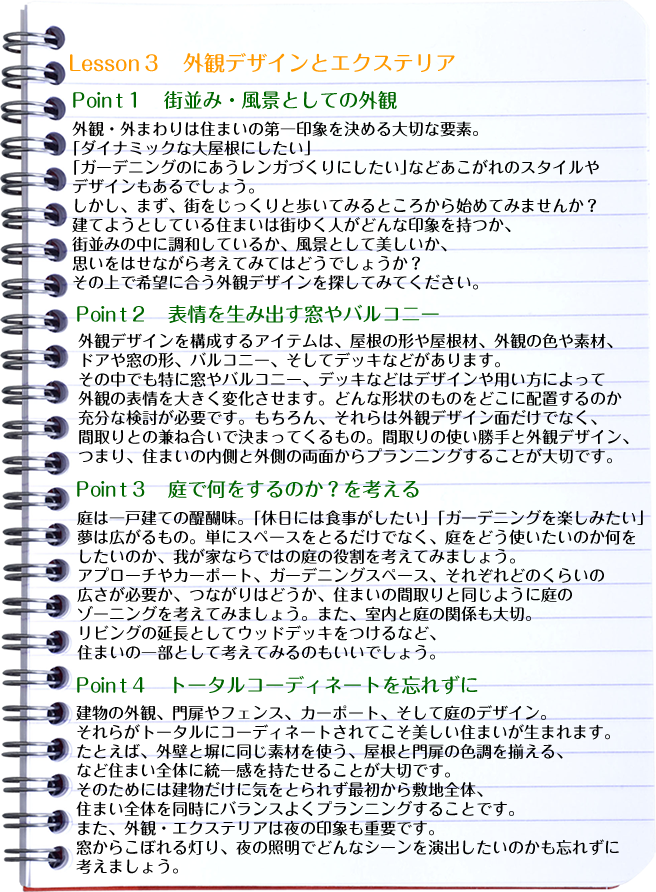 Lesson３　外観デザインとエクステリア
Point１　街並み・風景としての外観
外観・外まわりは住まいの第一印象を決める大切な要素。
「ダイナミックな大屋根にしたい」
「ガーデニングのにあうレンガづくりにしたい」などあこがれのスタイルや
デザインもあるでしょう。
しかし、まず、街をじっくりと歩いてみるところから始めてみませんか？
建てようとしている住まいは街ゆく人がどんな印象を持つか、
街並みの中に調和しているか、風景として美しいか、
思いをはせながら考えてみてはどうでしょうか？
その上で希望に合う外観デザインを探してみてください。
Point２　表情を生み出す窓やバルコニー
外観デザインを構成するアイテムは、屋根の形や屋根材、外観の色や素材、
ドアや窓の形、バルコニー、そしてデッキなどがあります。
その中でも特に窓やバルコニー、デッキなどはデザインや用い方によって
外観の表情を大きく変化させます。どんな形状のものをどこに配置するのか
充分な検討が必要です。もちろん、それらは外観デザイン面だけでなく、
間取りとの兼ね合いで決まってくるもの。間取りの使い勝手と外観デザイン、
つまり、住まいの内側と外側の両面からプランニングすることが大切です。
Point３　庭で何をするのか？を考える
庭は一戸建ての醍醐味。「休日には食事がしたい」「ガーデニングを楽しみたい」
夢は広がるもの。単にスペースをとるだけでなく、庭をどう使いたいのか何を
したいのか、我が家ならではの庭の役割を考えてみましょう。
アプローチやカーポート、ガーデニングスペース、それぞれどのくらいの
広さが必要か、つながりはどうか、住まいの間取りと同じように庭の
ゾーニングを考えてみましょう。また、室内と庭の関係も大切。
リビングの延長としてウッドデッキをつけるなど、
住まいの一部として考えてみるのもいいでしょう。
Point４　トータルコーディネートを忘れずに
建物の外観、門扉やフェンス、カーポート、そして庭のデザイン。
それらがトータルにコーディネートされてこそ美しい住まいが生まれます。
たとえば、外壁と塀に同じ素材を使う、屋根と門扉の色調を揃える、
など住まい全体に統一感を持たせることが大切です。
そのためには建物だけに気をとられず最初から敷地全体、
住まい全体を同時にバランスよくプランニングすることです。
また、外観・エクステリアは夜の印象も重要です。
窓からこぼれる灯り、夜の照明でどんなシーンを演出したいのかも忘れずに
考えましょう。